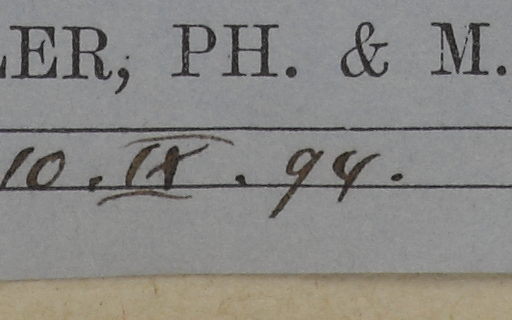 LER, PH. & M.
10. IX. 94.